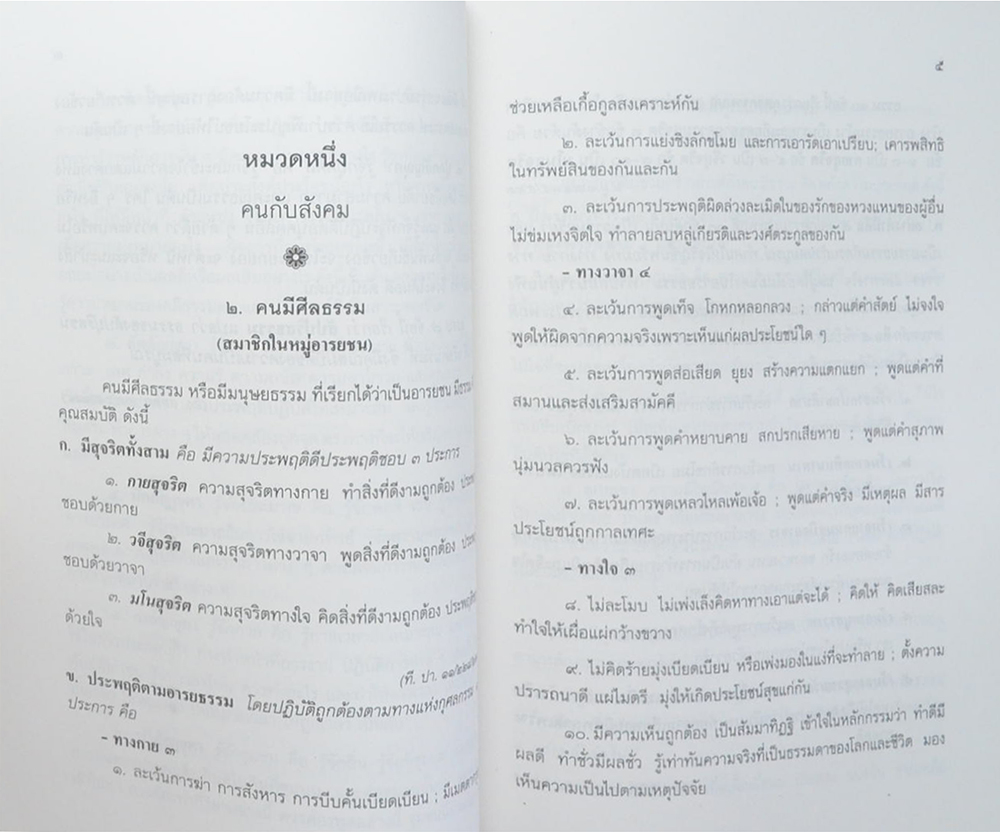 หมวดหนึ่ง
คนกับสังคม
๒. คนมีศีลธรรม
(สมาชิกในหมู่อารยชน)
คนมีศีลธรรม หรือมีมนุษยธรรม ที่เรียกได้ว่าเป็นอารยชน มีธรรม
คุณสมบัติ ดังนี้
ก. มีสุจริตทั้งสาม คือ มีความประพฤติดีประพฤติชอบ ๓ ประการ
๑. กายสุจริต ความสุจริตทางกาย ทำสิ่งที่ดีงามถูกต้อง
ชอบด้วยกาย
๒. วจีสุจริต ความสุจริตทางวาจา พูดสิ่งที่ดีงามถูกต้อง
ชอบด้วยวาจา
๓. มโนสุจริต ความสุจริตทางใจ คิดสิ่งที่ดีงามถูกต้อง
ด้วยใจ
(ที. ปา.
ข. ประพฤติตามอารยธรรม โดยปฏิบัติถูกต้องตามทางแห่งกุศลกรรม
ประการ คือ
- ทางกาย ๓
๑. ละเว้นการฆ่า การสังหาร การบีบคั้นเบียดเบียน ;
๕
ช่วยเหลือเกื้อกูลสงเคราะห์กัน
๒. ละเว้นการแย่งชิงลักขโมย และการเอารัดเอาเปรียบ; เคารพสิทธิ
ในทรัพย์สินของกันและกัน
๓. ละเว้นการประพฤติผิดล่วงละเมิดในของรักของหวงแหนของผู้อื่น
ไม่ข่มเหงจิตใจ ทำลายลบหลู่เกียรติและวงศ์ตระกูลของกัน
- ทางวาจา ๔
๔. ละเว้นการพูดเท็จ โกหกหลอกลวง ; กล่าวแต่คำสัตย์ ไม่จงใจ
พูดให้ผิดจากความจริงเพราะเห็นแก่ผลประโยชน์ใด ๆ
๕. ละเว้นการพูดส่อเสียด ยุยง สร้างความแตกแยก ; พูดแต่คำที่
สมานและส่งเสริมสามัคคี
๖. ละเว้นการพูดคำหยาบคาย สกปรกเสียหาย ; พูดแต่คำสุภาพ
นุ่มนวลควรฟัง
๗. ละเว้นการพูดเหลวไหลเพ้อเจ้อ ; พูดแต่คำจริง มีเหตุผล มีสาร
ประโยชน์ถูกกาลเทศะ
- ทางใจ ๓
๘. ไม่ละโมบ ไม่เพ่งเล็งคิดหาทางเอาแต่จะได้ ; คิดให้ คิดเสียสละ
ทำใจให้เผื่อแผ่กว้างขวาง
๙. ไม่คิดร้ายมุ่งเบียดเบียน หรือเพ่งมองในแง่ที่จะทำลาย ; ตั้งความ
ปรารถนาดี แผ่ไมตรี มุ่งให้เกิดประโยชน์สุขแก่กัน
๑๐. มีความเห็นถูกต้อง เป็นสัมมาทิฏฐิ เข้าใจในหลักกรรมว่า ทำดีมี
ผลดี ทำชั่วมีผลชั่ว รู้เท่าทันความจริงที่เป็นธรรมดาของโลกและชีวิต มอง
เห็นความเป็นไปตามเหตุปัจจัย